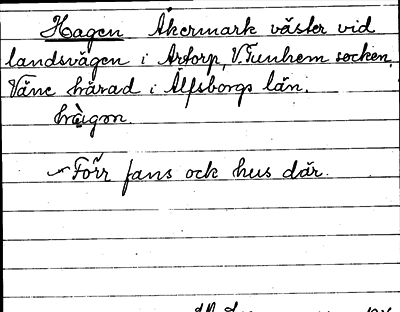 Hagen Åkermark väster vid
landsvägen i Artorp, V. Tunhem socken,
Väne härad i Älfsborgs län.
hàgon.
Förr fans ock hus där.